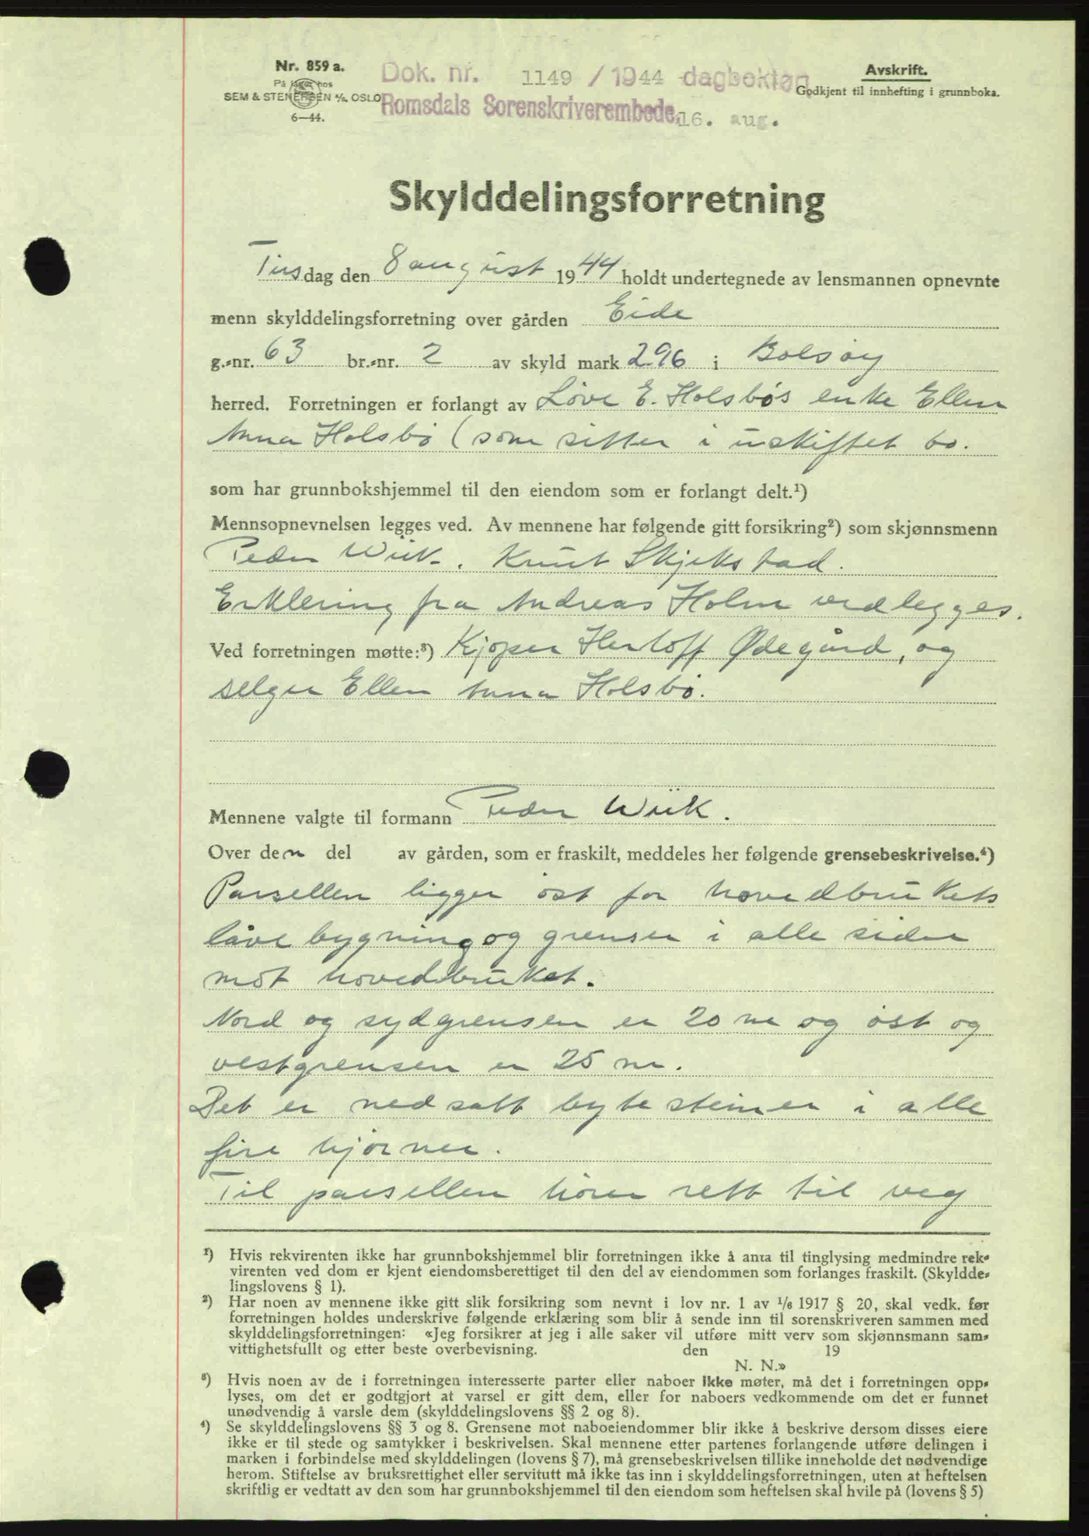 Nr. 859 a.
På lager hos
SEM & STENERSEN A/S, OSLO
6—44.
Dok. nr. 1149 / 1944 dagbok
Romsdals Sorenskriverembede. 16. aug.
Avskrift.
Godkjent til innhefting i grunnboka.
Skylddelingsforretning
Tirsdag den 8 august 1944 holdt undertegnede av lensmannen opnevnte
menn skylddelingsforretning over gården Eide
g.-nr. 63 br.-nr. 2 av skyld mark 2.96 i Bolsøy
herred. Forretningen er forlangt av Løve E. Holsbøs enke Ellen
Anna Holsbø (som sitter i uskiftet bo.
som har grunnbokshjemmel til den eiendom som er forlangt delt.¹)
Mennsopnevnelsen legges ved. Av mennene har følgende gitt forsikring²) som skjønnsmenn
Peder Wiik. Knut Skjekstad.
Erklering fra Andreas Holm vedlegges.
Ved forretningen møtte:³) Kjøper Herloff Ødegård, og
selger Ellen Anna Holsbø.
Mennene valgte til formann Peder Wiik.
Over den del av gården, som er fraskilt, meddeles her følgende grensebeskrivelse.⁴)
Parsellen ligger øst for hovedbrukets
låvebygning og grenser i alle sider
mot hovedbruket.
Nord og sydgrensen er 20 m og øst og
vestgrensen er 25 m.
Det er nedsatt bytesteiner i alle
fire hjørner.
Til parsellen hører rett til veg
¹) Hvis rekvirenten ikke har grunnbokshjemmel blir forretningen ikke å anta til tinglysing medmindre rek-
virenten ved dom er kjent eiendomsberettiget til den del av eiendommen som forlanges fraskilt. (Skyldde-
lingslovens § 1).
²) Har noen av mennene ikke gitt slik forsikring som nevnt i lov nr. 1 av ¹/₆ 1917 § 20, skal vedk. før
forretningen holdes underskrive følgende erklæring som blir å sende inn til sorenskriveren sammen med
skylddelingsforretningen: «Jeg forsikrer at jeg i alle saker vil utføre mitt verv som skjønnsmann sam-
vittighetsfullt og etter beste overbevisning. den 19
N. N.»
³) Hvis noen av de i forretningen interesserte parter eller naboer ikke møter, må det i forretningen opp-
lyses, om det er godtgjort at varsel er gitt dem, eller for naboers vedkommende om det er funnet
unødvendig å varsle dem (skylddelingslovens §§ 2 og 8).
⁴) Se skylddelingslovens §§ 3 og 8. Grensene mot naboeiendommer blir ikke å beskrive dersom disses eiere
ikke er til stede og samtykker i beskrivelsen. Skal mennene etter partenes forlangende utføre delingen i
marken i forbindelse med skylddelingen (lovens § 7), må grensebeskrivelsen tillike inneholde det nødvendige
herom. Stiftelse av bruksrettighet eller servitutt må ikke tas inn i skylddelingsforretningen, uten at heftelsen
skriftlig er vedtatt av den som har grunnbokshjemmel til den eiendom som heftelsen skal hvile på (lovens § 5)